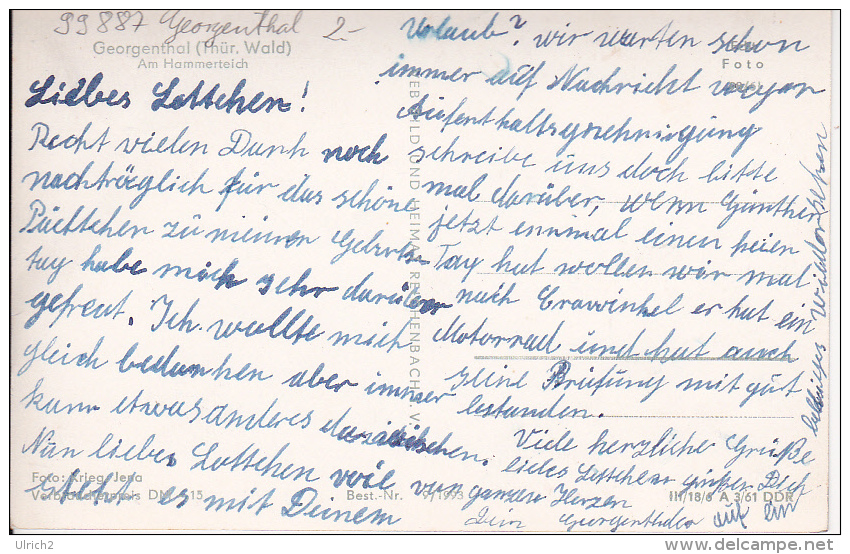 99887 Georgenthal 2.-
Georgenthal (Thür. Wald)
Am Hammerteich
Liebes Lottchen!
Recht vielen Dank noch
nachträglich für das schöne
Päckchen zu meinen Geburts-
tag habe mich sehr darüber
gefreut. Ich wollte mich
gleich bedanken aber immer
kam etwas anderes dazwischen.
Nun liebes Lottchen wie
steht es mit Deinem
Urlaub? wir warten schon
immer auf Nachricht wegen
Aufenthaltsgenehmigung
schreibe uns doch bitte
mal darüber, wenn Günther
jetzt einmal einen freien
Tag hat wollen wir mal
nach Crawinkel er hat ein
Motorrad und hat auch
seine Prüfung mit gut
bestanden.
Viele herzliche Grüße
liebes Lottchen grüßen Dich
von ganzen Herzen
Dein Georgenthaler auf ein
baldiges wiedersehen
Foto
BILD UND HEIMAT REICHENBACH
Foto: Krieg, Jena
Best.-Nr. 9/1993
III/18/6 A 3/61 DDR
delcampe.net
Urlich2